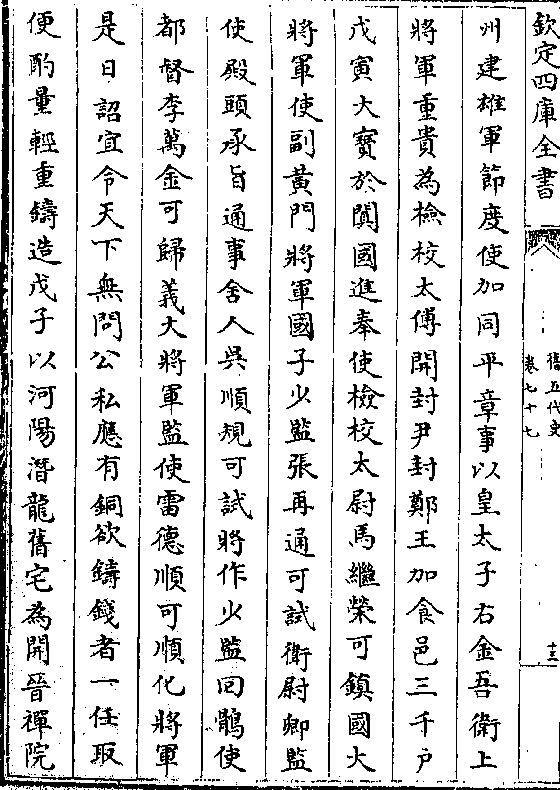 欽定四庫全書
舊五代史
卷七十七
十三
州建雄軍節度使加同平章事以皇太子右金吾衛上
將軍重貴為檢校太傅開封尹封鄭王加食邑三千戶
戊寅大寳於闐國進奉使檢校太尉馬繼榮可鎮國大
將軍使副黃門將軍國子少監張再通可試衛尉卿監
使殿頭承旨通事舍人吳順規可試將作少監回鶻使
都督李萬金可歸義大將軍監使雷德順可順化將軍
是日詔宜令天下無問公私應有銅欲鑄錢者一任取
便酌量輕重鑄造戊子以河陽潛龍舊宅為開晉禪院